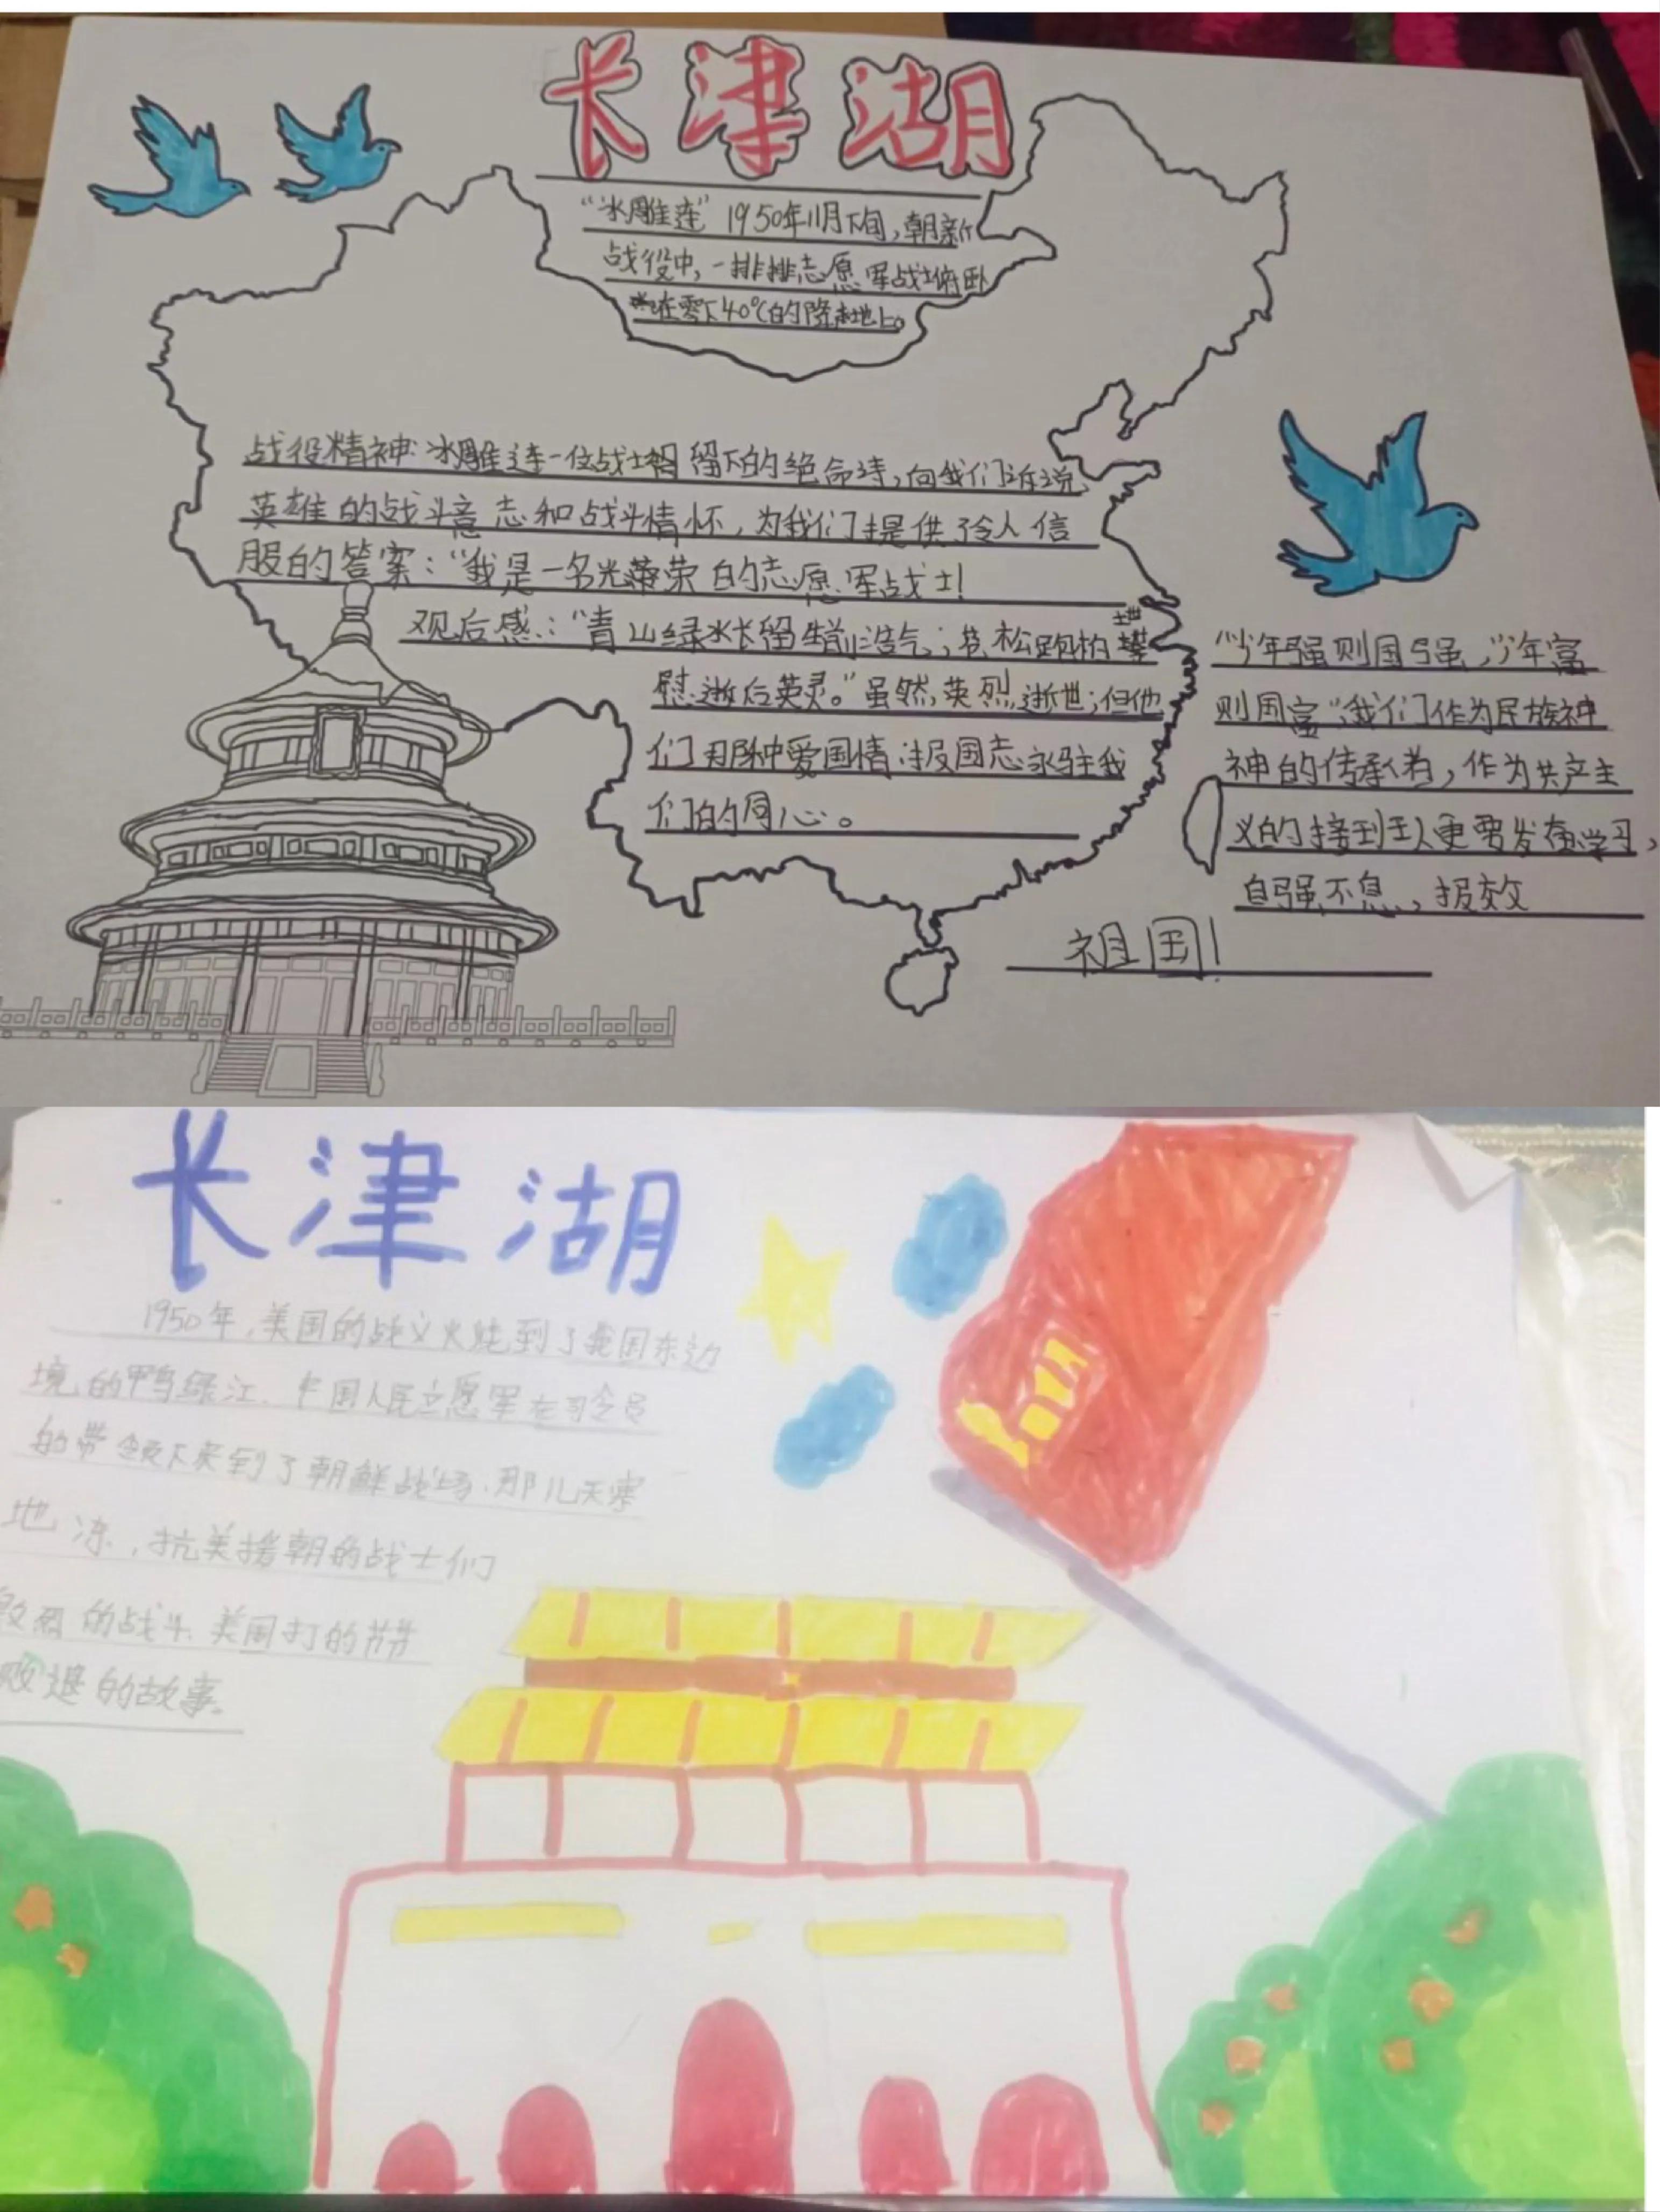 长津湖
"冰雕连"1950年11月下旬,朝新
战役中,一排排志愿军战士俯卧
在零下40℃的阵地上。
战役精神:冰雕连一位战士留下的绝命诗,向我们诉说
英雄的战斗意志和战斗情怀,为我们提供了令人信
服的答案:"我是一名光荣的志愿军战士!
观后感:"青山绿水长留生前浩气;苍松跑柏
慰逝后英灵。"虽然,英烈逝世;但他
们那种爱国情、报国志永驻我
们的同心。
"少年强则国强,少年富
则国富",我们作为民族神
神的传承者,作为共产主
义的接班人更要发奋学习,
自强不息,报效
祖国!
长津湖
1950年,美国的战火烧到了我国东边
境的鸭绿江.中国人民志愿军在司令员
的带领下来到了朝鲜战场.那儿天寒
地冻,抗美援朝的战士们
激烈的战斗.美国打的节节
败退的故事。